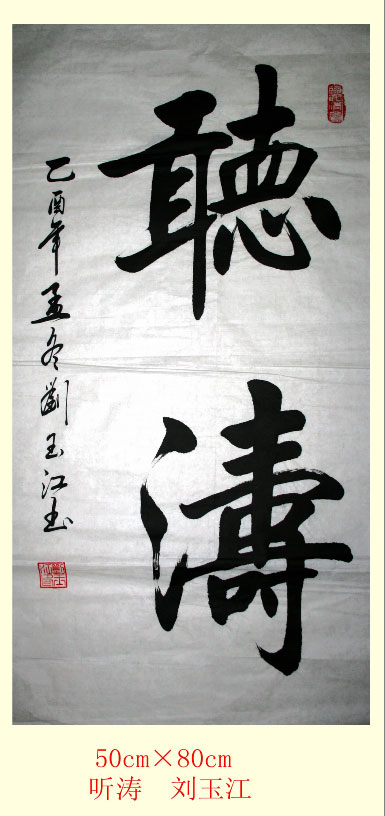 聽濤
乙酉年孟冬劉玉江書
50cm×80cm
听涛 刘玉江